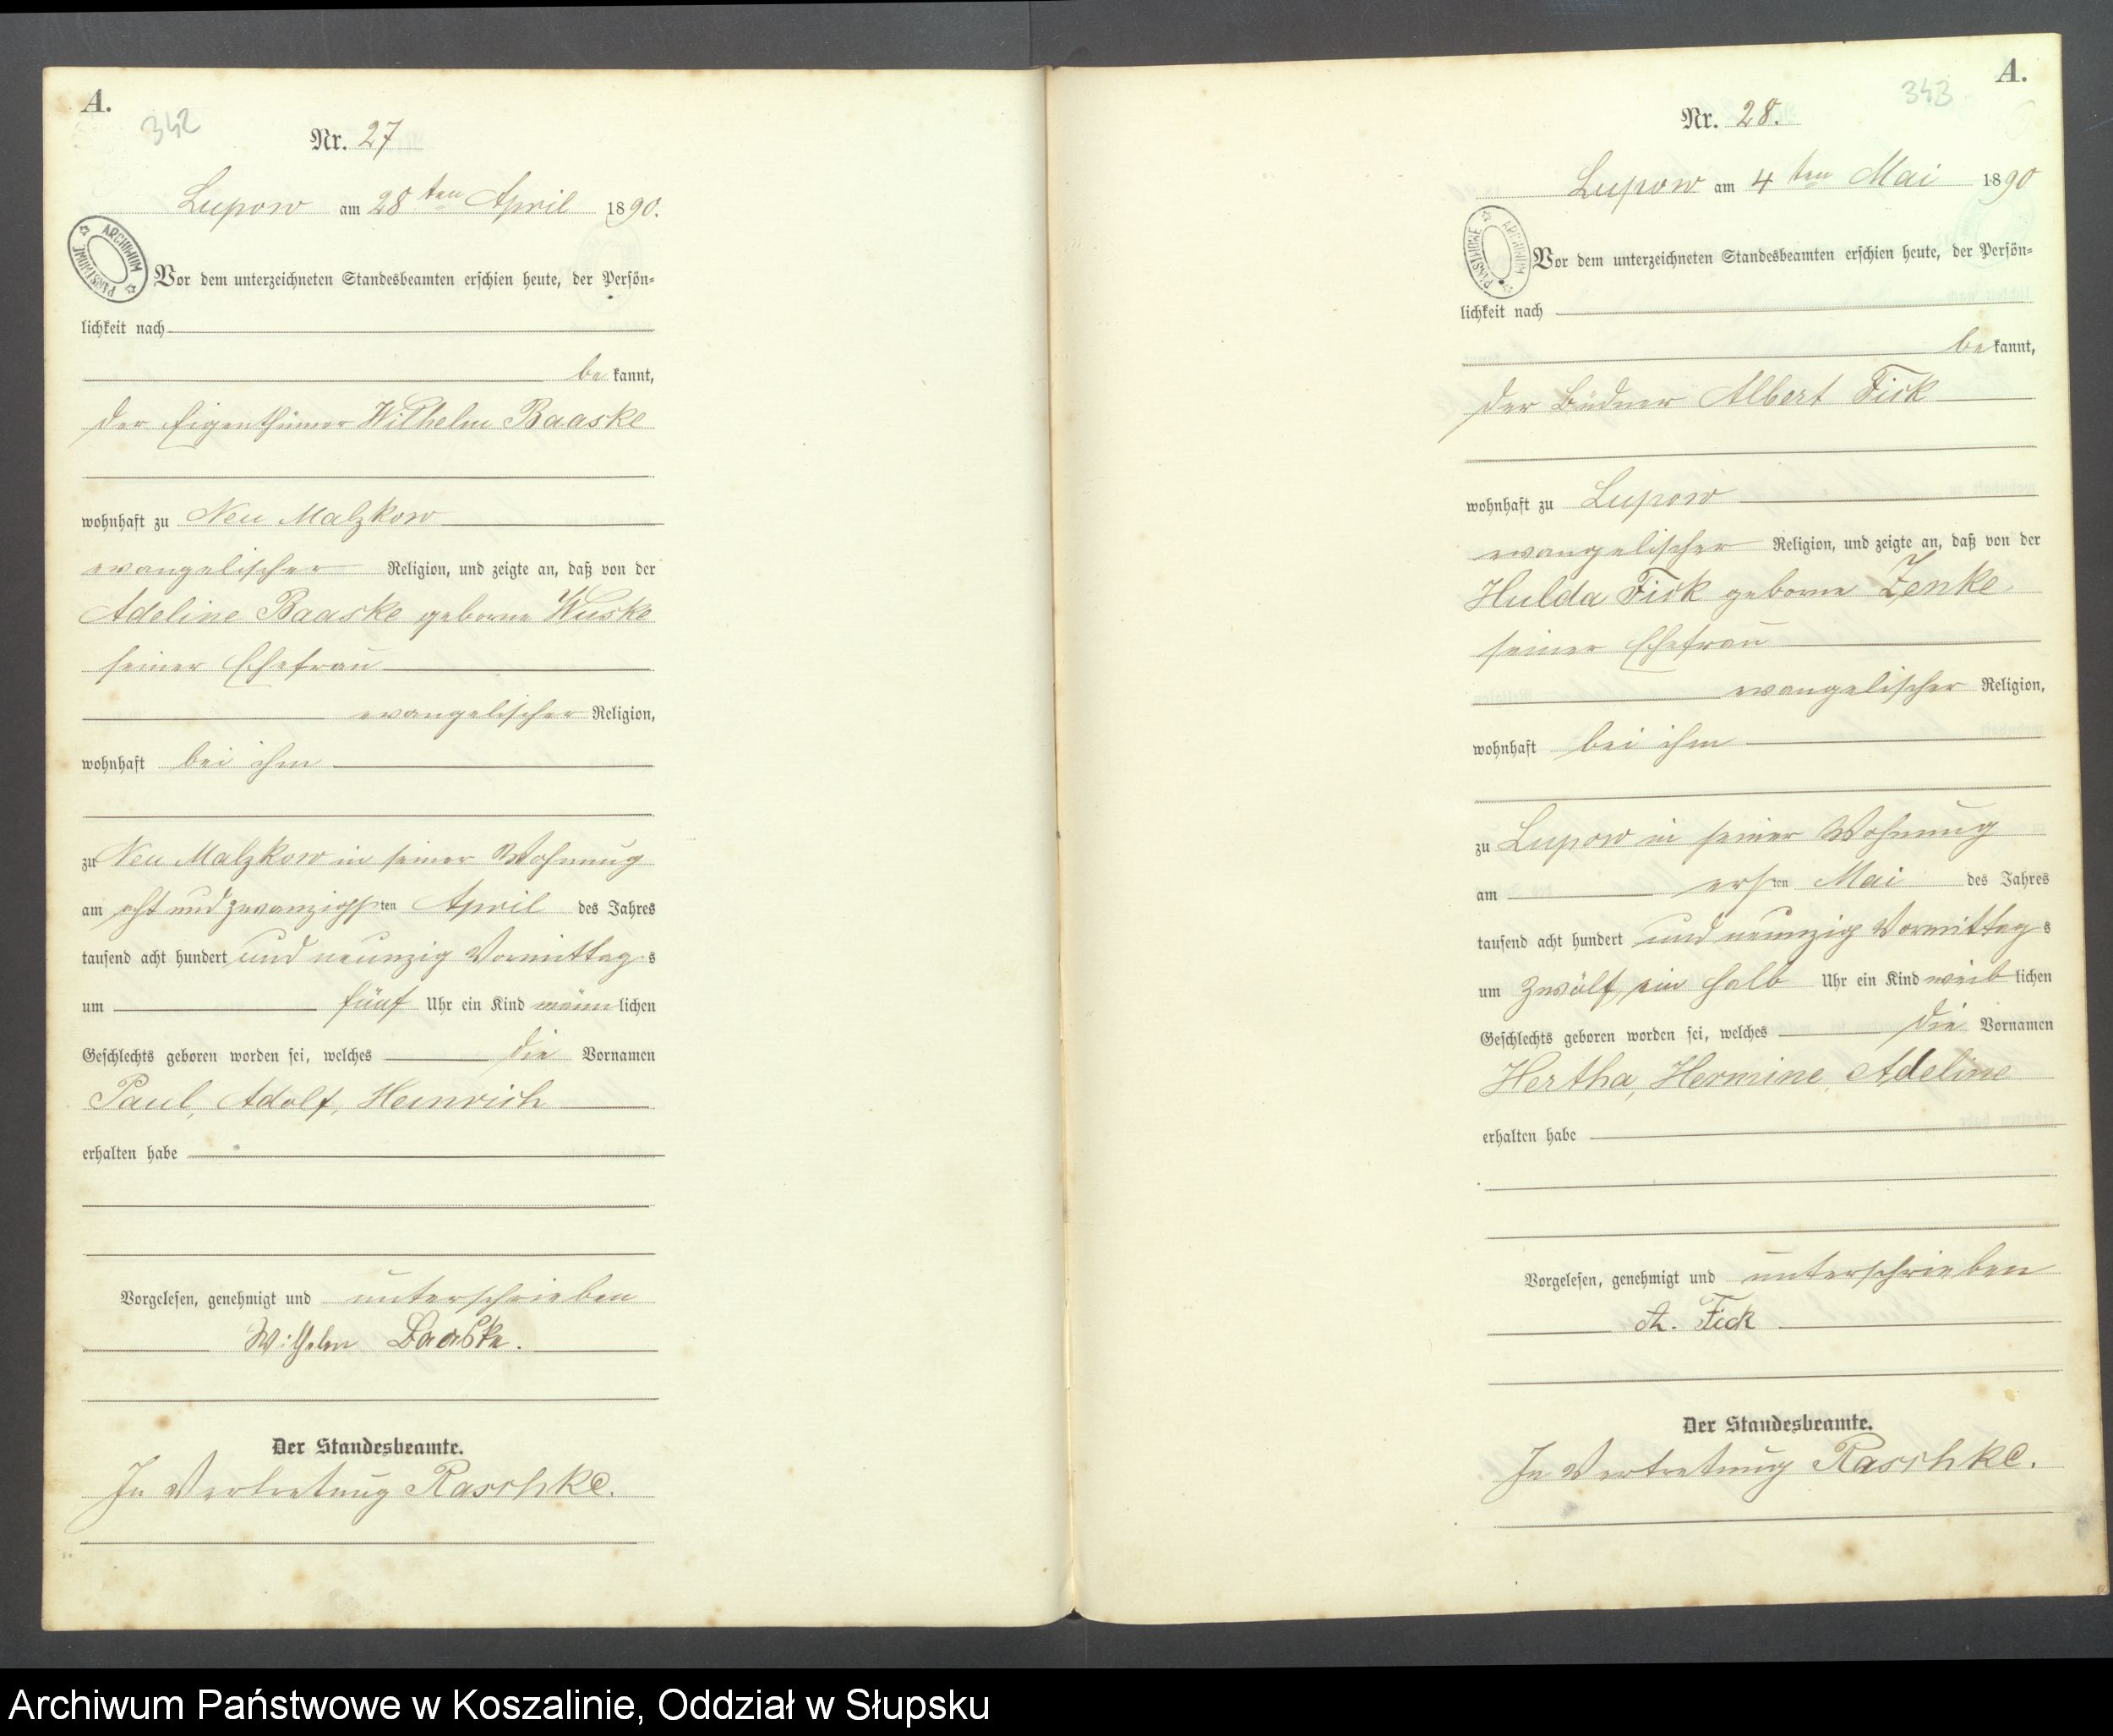 A.
342
Nr. 27
Lupow am 28 ten April 1890.
ARCHIWUM PAŃSTWOWE
Vor dem unterzeichneten Standesbeamten erschien heute, der Persön=
lichkeit nach
be kannt,
der Eigenthümer Wilhelm Baaske
wohnhaft zu Neu Malzkow
evangelischer Religion, und zeigte an, daß von der
Adeline Baaske geborne Wuske
seiner Ehefrau
evangelischer Religion,
wohnhaft bei ihm
zu Neu Malzkow in seiner Wohnung
am acht und zwanzigsten April des Jahres
tausend acht hundert und neunzig Vormittags
um fünf Uhr ein Kind männlichen
Geschlechts geboren worden sei, welches die Vornamen
Paul, Adolf, Heinrich
erhalten habe
Vorgelesen, genehmigt und unterschrieben
Wilhelm Baaske.
Der Standesbeamte.
In Vertretung Raschke.
A.
343
Nr. 28.
Lupow am 4 ten Mai 1890
ARCHIWUM PAŃSTWOWE
Vor dem unterzeichneten Standesbeamten erschien heute, der Persön=
lichkeit nach
be kannt,
der Büdner Albert Fick
wohnhaft zu Lupow
evangelischer Religion, und zeigte an, daß von der
Hulda Fick geborne Zenke
seiner Ehefrau
evangelischer Religion,
wohnhaft bei ihm
zu Lupow in seiner Wohnung
am ersten Mai des Jahres
tausend acht hundert und neunzig Vormittags
um zwölf ein halb Uhr ein Kind weiblichen
Geschlechts geboren worden sei, welches die Vornamen
Hertha, Hermine, Adeline
erhalten habe
Vorgelesen, genehmigt und unterschrieben
A. Fick
Der Standesbeamte.
In Vertretung Raschke.
Archiwum Państwowe w Koszalinie, Oddział w Słupsku